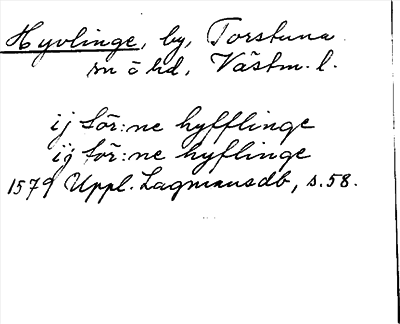 Hyvlinge, by, Torstuna
sn o hd, Västm. l.
ij Sör:ne hyfflinge
ij Sör:ne hyflinge
1579 Uppl. Lagmansdb, s. 58.